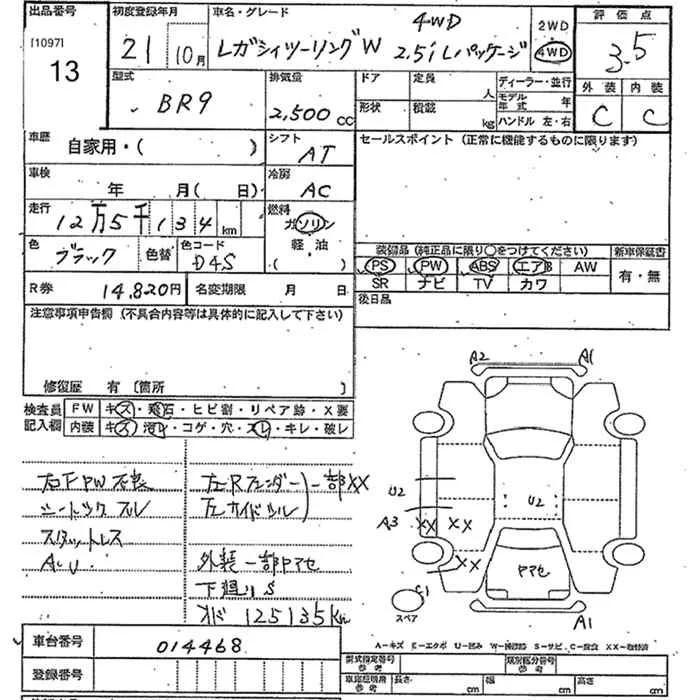 出品番号 初度登録年月 車名・グレード 評価点
[1097] 13 21 10月 レガシィツーリングW 4WD 2.5i Lパッケージ 2WD 4WD 3.5
型式 排気量 ドア 定員 人 ディーラー・並行 外装 内装
BR9 2,500 CC 形状 積載 kg モデル年式 年 C C
ハンドル 左・右
車歴 自家用・( ) シフト AT セールスポイント(正常に機能するものに限ります)
車検 年 月( 日) 冷房 AC
走行 12万5千134km 燃料 ガソリン
軽・油
( )
色 ブラック 色替 色コード D4S
装備品(純正品に限り○をつけてください) 新車保証書
PS PW ABS エアB AW 有・無
SR ナビ TV カワ
R券 14,820円 名変期限 月 日 後日品
注意事項申告欄(不具合内容等は具体的に記入して下さい)
修復歴 有 〔箇所 〕
検査員記入欄 FW キズ・飛石・ヒビ割・リペア跡・X要
内装 キズ・汚レ・コゲ・穴・スレ・キレ・破レ
シートツクスレ
スタットレス
左Rフェンダー 一部XX
左サイドシル
外装一部ヤケセ
下廻りS
125135km
A2 A1
U2 U2
A3 XX XX
XX
ヤケセ
スペア
A1
A-キズ E-エクボ U-凹み W-補修跡 S-サビ C-腐食 XX-取替済
車台番号 014468
登録番号
型式指定番号 参考 類別区分番号 参考
車庫証明用 参考 長さ cm 幅 cm 高さ cm